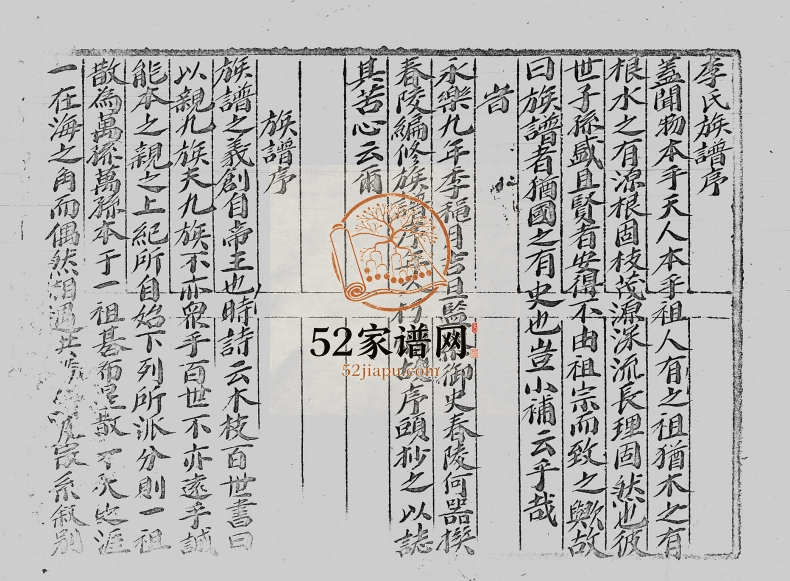 李氏族譜序
蓋聞物本乎天人本乎祖人有之祖猶木之有
根水之有源根固枝茂源深流長理固然也彼
世子孫盛且賢者安得不由祖宗而致之歟故
曰族譜者猶國之有史也豈小補云乎哉
峕
永樂九年李穐月吉旦監御史春陵何器撰
春陵編修族譜序序頭抄之以誌
其苦心云爾
族譜序
族譜之義創自帝王也時詩云木枝百世書曰
以親九族夫九族不亦衆乎百世不亦遠乎誠
能本之親之上紀所自始下列所派分則一祖
散為萬孫萬孫本于一祖碁布星散
一在海之角而偶然相遇系敘別
52家谱网
52jiapu.com